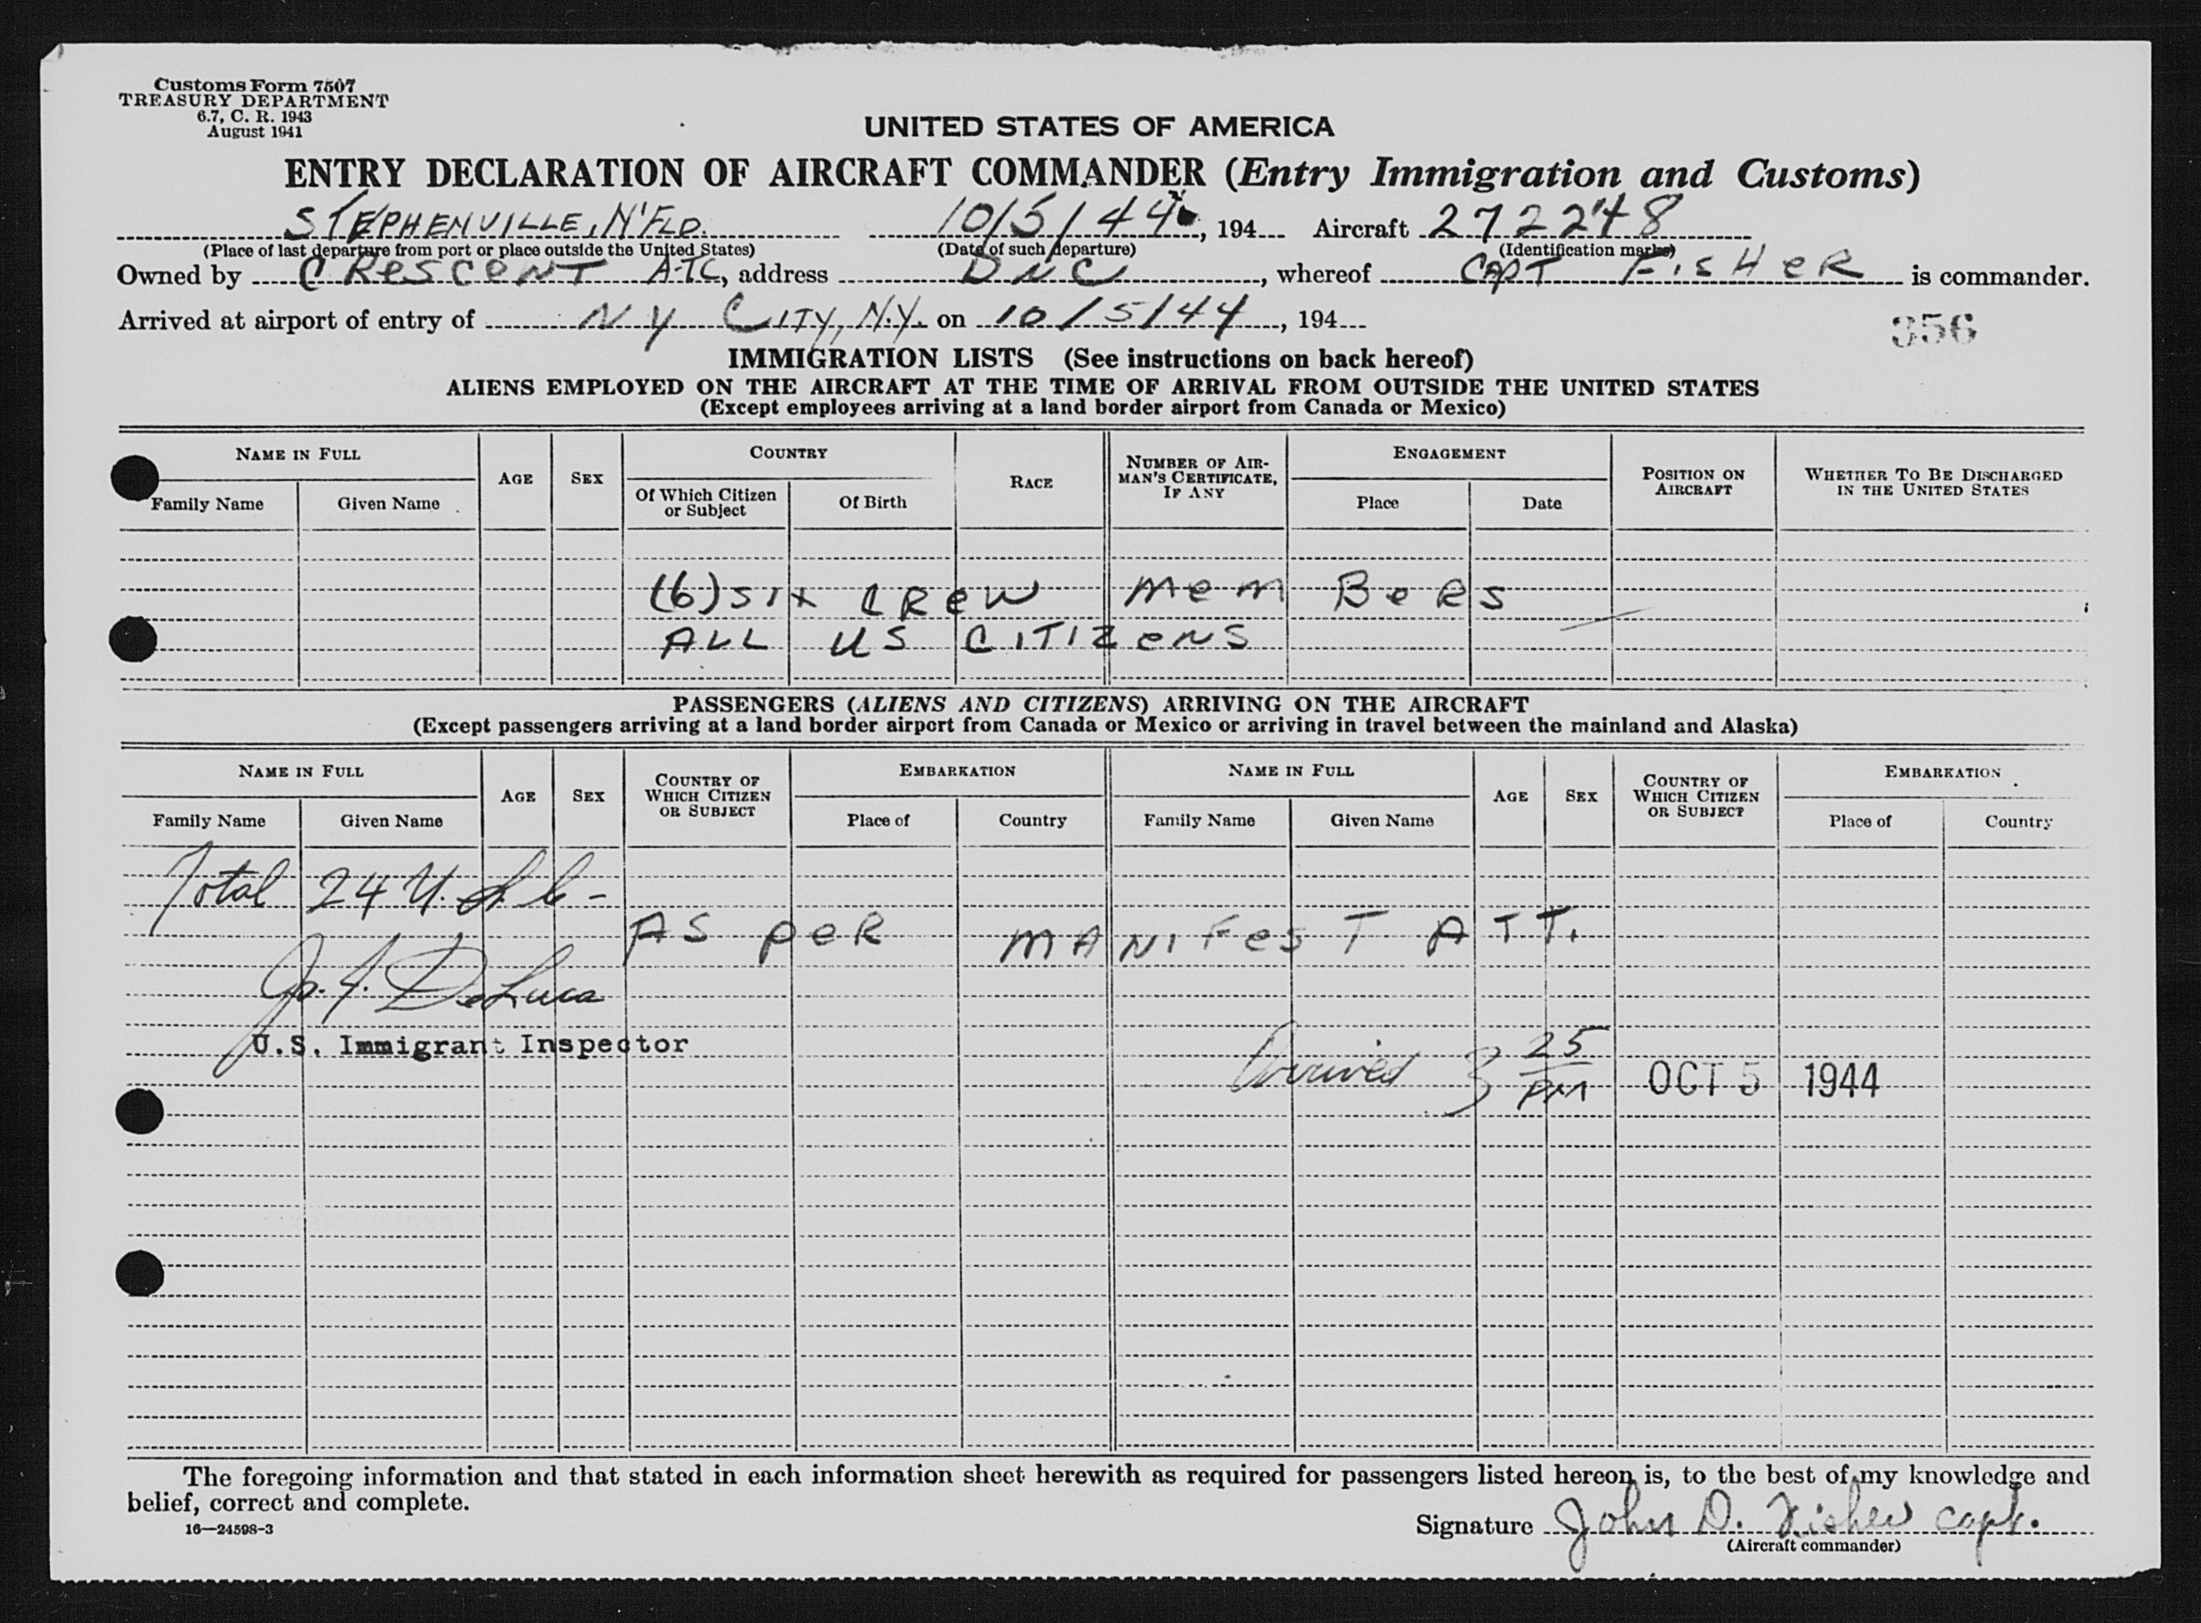 Customs Form 7507
TREASURY DEPARTMENT
6.7, C. R. 1943
August 1941
UNITED STATES OF AMERICA
ENTRY DECLARATION OF AIRCRAFT COMMANDER (Entry Immigration and Customs)
STEPHENVILLE, N'FLD. 10/5/44, 194 Aircraft 272248
(Place of last departure from port or place outside the United States) (Date of such departure) (Identification marks)
Owned by CRESCENT ATC, address DNC, whereof CAPT FISHER is commander.
Arrived at airport of entry of NY CITY, N.Y. on 10/5/44, 194
356
IMMIGRATION LISTS (See instructions on back hereof)
ALIENS EMPLOYED ON THE AIRCRAFT AT THE TIME OF ARRIVAL FROM OUTSIDE THE UNITED STATES
(Except employees arriving at a land border airport from Canada or Mexico)
NAME IN FULL AGE SEX COUNTRY RACE NUMBER OF AIRMAN'S CERTIFICATE, IF ANY ENGAGEMENT POSITION ON AIRCRAFT WHETHER TO BE DISCHARGED IN THE UNITED STATES
Family Name Given Name Of Which Citizen or Subject Of Birth Place Date
(6) SIX CREW MEMBERS
ALL US CITIZENS
PASSENGERS (ALIENS AND CITIZENS) ARRIVING ON THE AIRCRAFT
(Except passengers arriving at a land border airport from Canada or Mexico or arriving in travel between the mainland and Alaska)
NAME IN FULL AGE SEX COUNTRY OF WHICH CITIZEN OR SUBJECT EMBARKATION NAME IN FULL AGE SEX COUNTRY OF WHICH CITIZEN OR SUBJECT EMBARKATION
Family Name Given Name Place of Country Family Name Given Name Place of Country
Total 24 U.S.C-
AS PER MANIFEST ATT.
Jo. J. DeLuca
U.S. Immigrant Inspector
Arrived 3 25 PM OCT 5 1944
The foregoing information and that stated in each information sheet herewith as required for passengers listed hereon is, to the best of my knowledge and
belief, correct and complete.
16—24598-3
Signature John D. Fisher Capt.
(Aircraft commander)